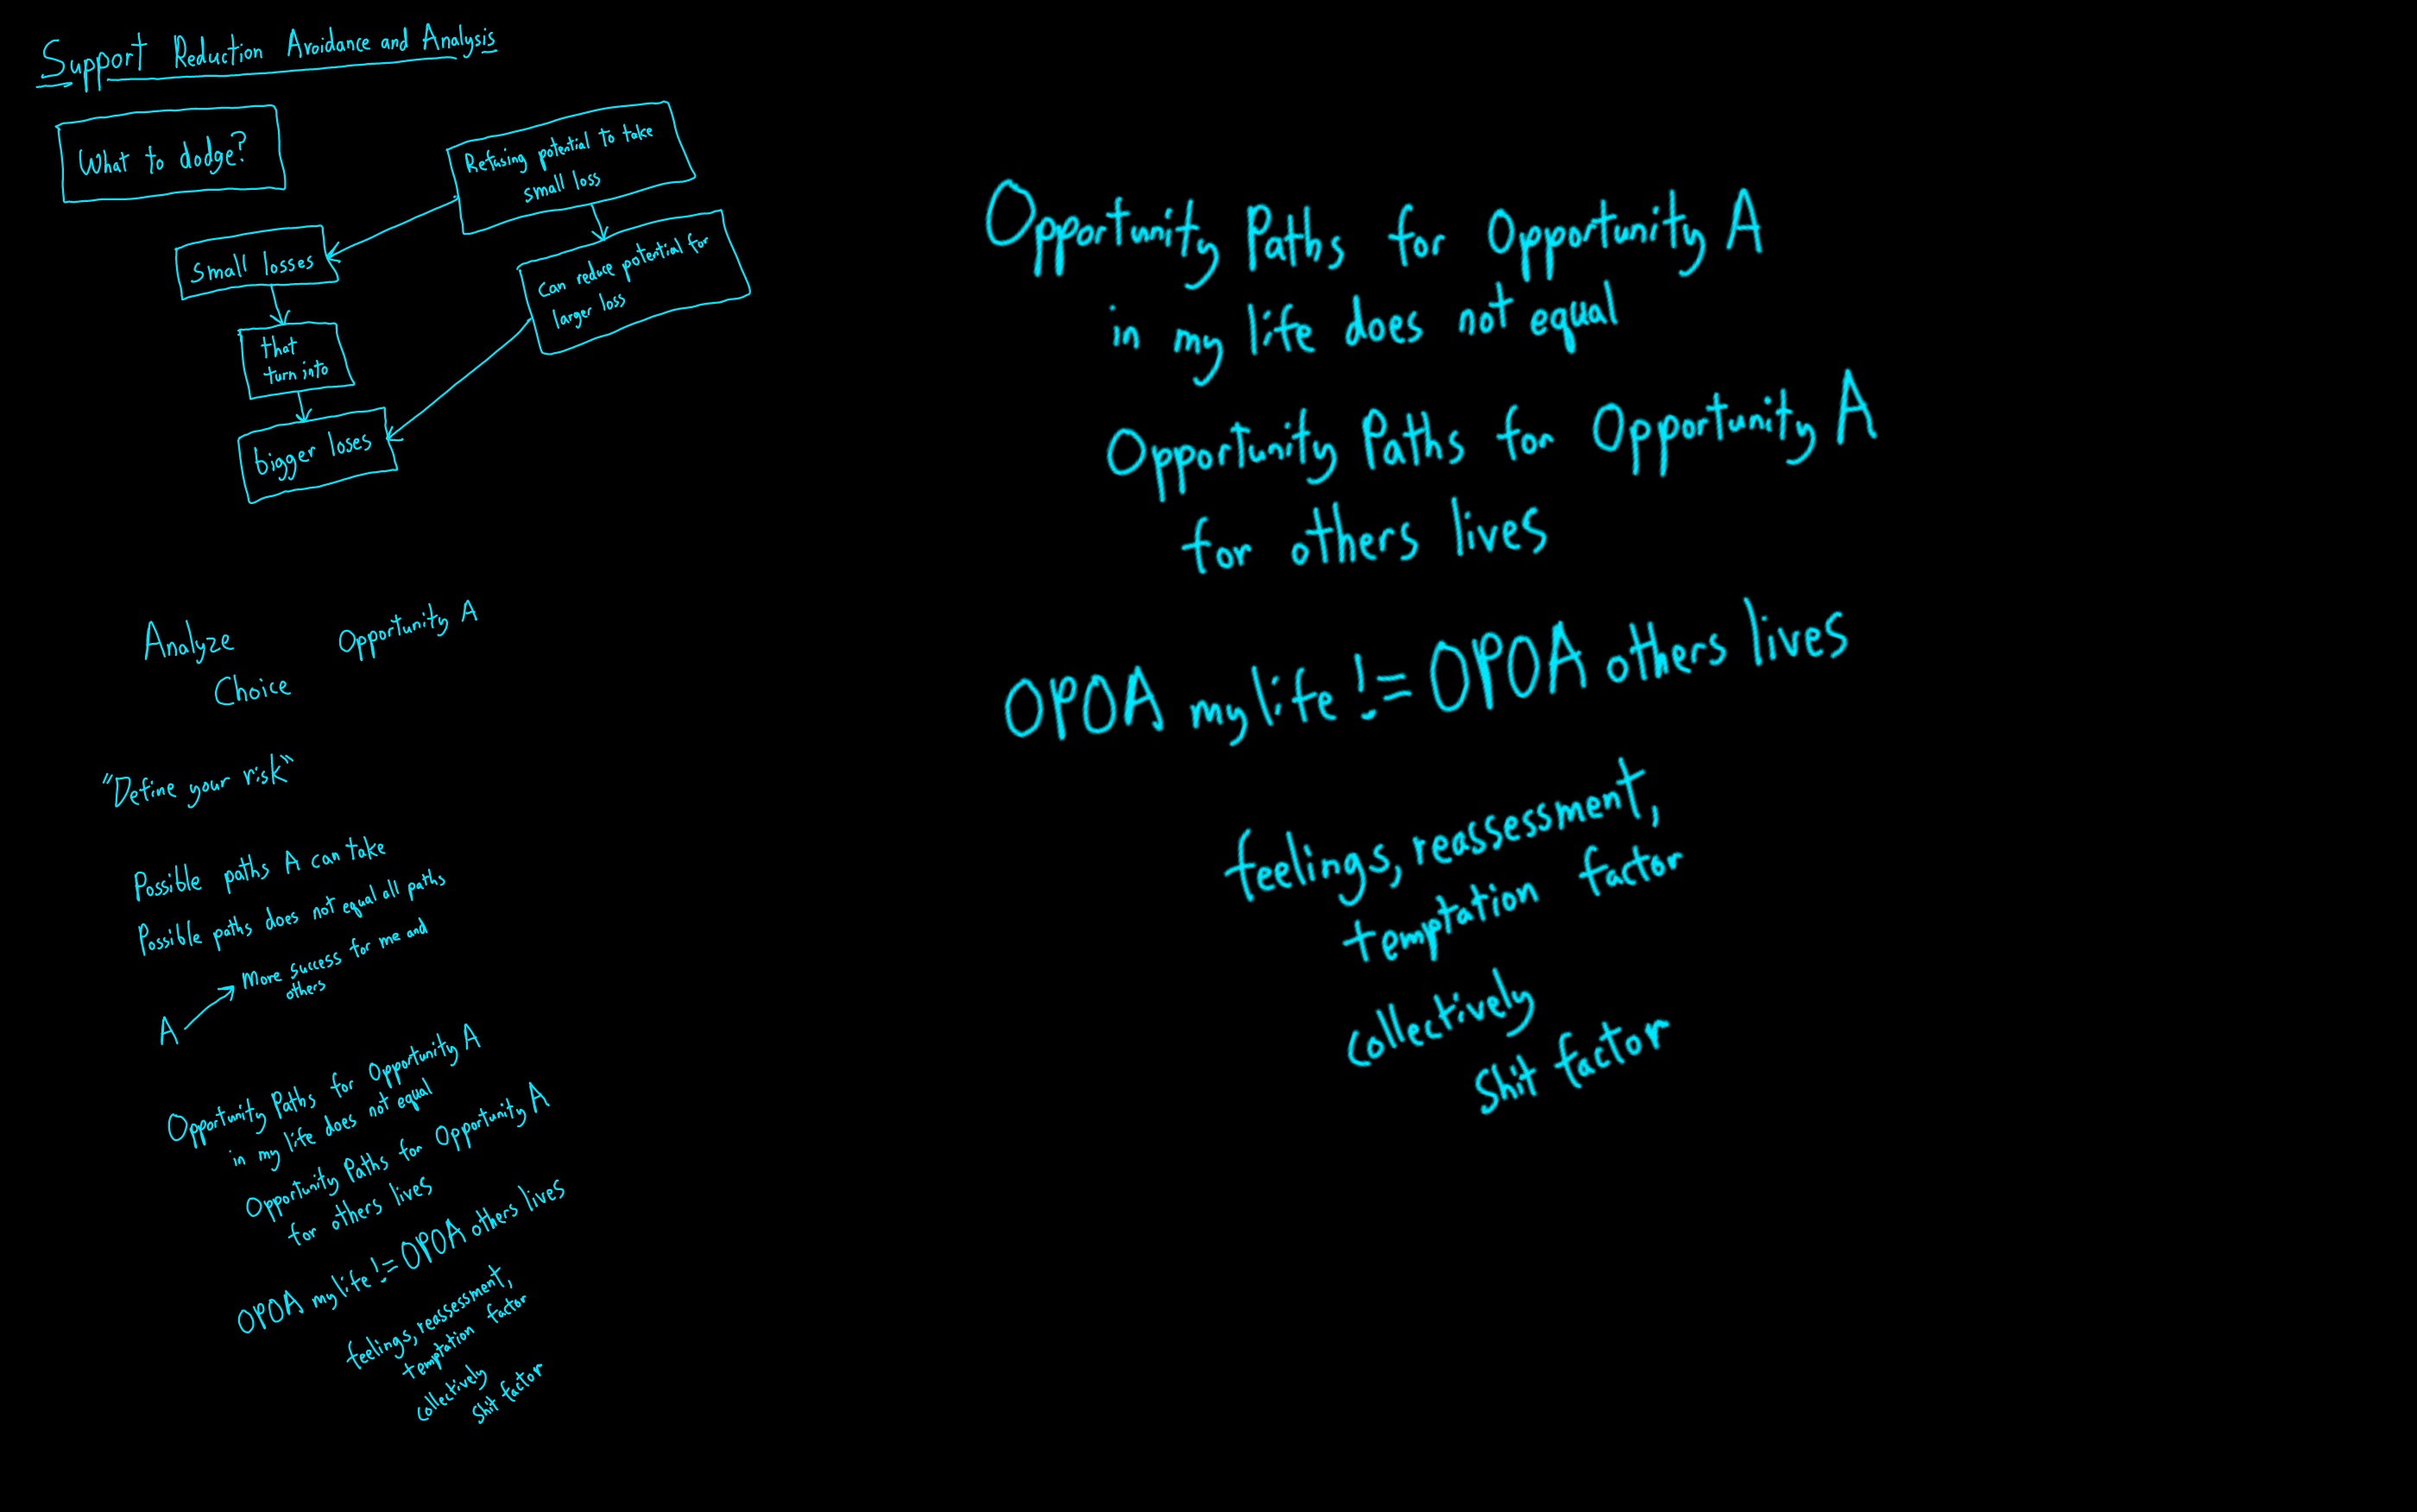 Support Reduction Avoidance and Analysis
What to dodge?
Refusing potential to take
small loss
Small losses
Can reduce potential for
larger loss
that
turn into
bigger loses
Analyze
Choice
Opportunity A
"Define your risk"
Possible paths A can take
Possible paths does not equal all paths
A
More success for me and
others
Opportunity Paths for Opportunity A
in my life does not equal
Opportunity Paths for Opportunity A
for others lives
OPOA my life != OPOA others lives
feelings, reassessment,
temptation factor
collectively
Shit factor
Opportunity Paths for Opportunity A
in my life does not equal
Opportunity Paths for Opportunity A
for others lives
OPOA my life != OPOA others lives
feelings, reassessment,
temptation factor
collectively
Shit factor